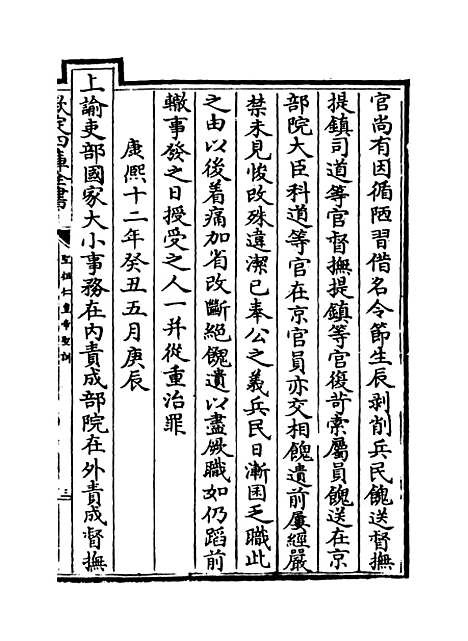 官尚有因循陋習借名令節生辰剥削兵民餽送督撫
提鎮司道等官督撫提鎮等官復苛索屬員餽送在京
部院大臣科道等官在京官員亦交相餽遺前屢經嚴
禁未見悛改殊違潔已奉公之義兵民日漸困乏職此
之由以後着痛加省改斷絕餽遺以盡厥職如仍蹈前
轍事發之日授受之人一并從重治罪
康熙十二年癸丑五月庚辰
上諭吏部國家大小事務在内責成部院在外責成督撫
欽定四庫全書
聖祖仁皇帝聖訓
三